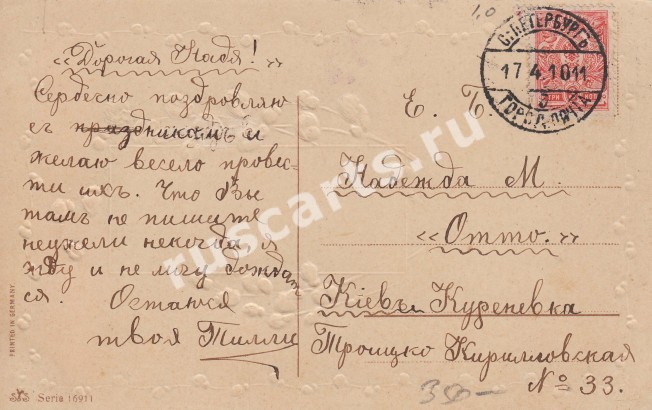 «Дорогая Надя!»
Сердесно поздровляю
съ праздникомъ и
желаю весело прове-
сти ихъ. Что Вы
тамъ не пишите
неужели некогда, я
жду и не могу дождат
ся. Остаюся
твоя Тилли
1,0
С.ПЕТЕРБУРГЪ
17 4 10 11
ГОРОД. ПОЧТА
ТРИ
Е. Б.
Надежда М.
«Отто.»
Кіевъ Куреневка
Троицко Кирилловская
№ 33.
350-
PRINTED IN GERMANY
Serie 16911
ruscarts.ru